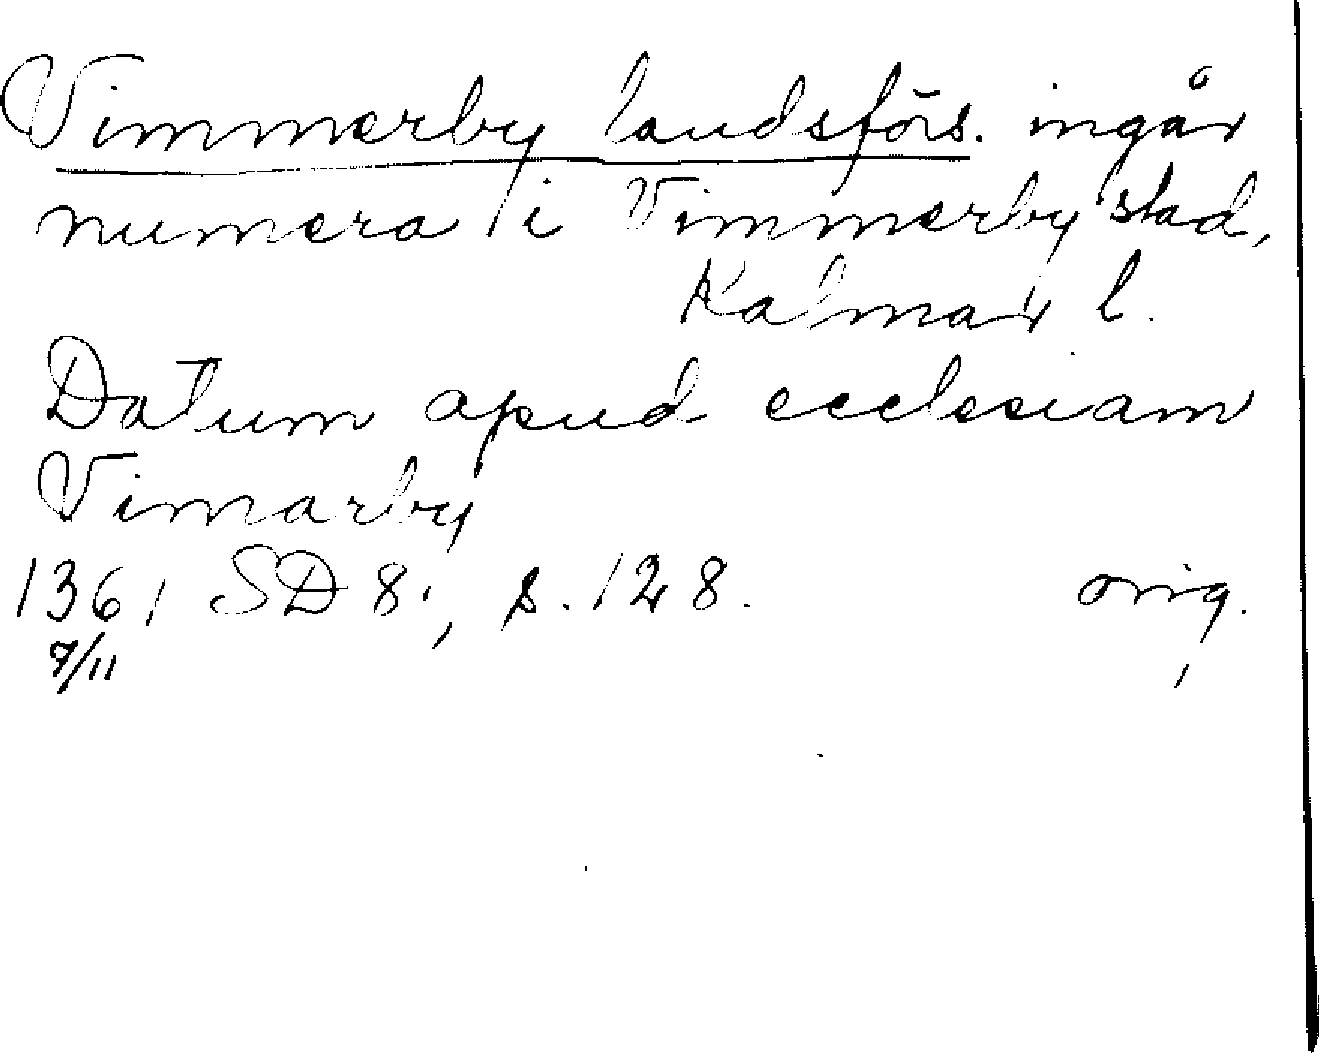 Vimmerby landsförs. ingår
numera i Vimmerby stad,
Kalmar l.
Datum apud ecclesiam
Vimarby
1361 SD 8, s. 128. orig.
7/11